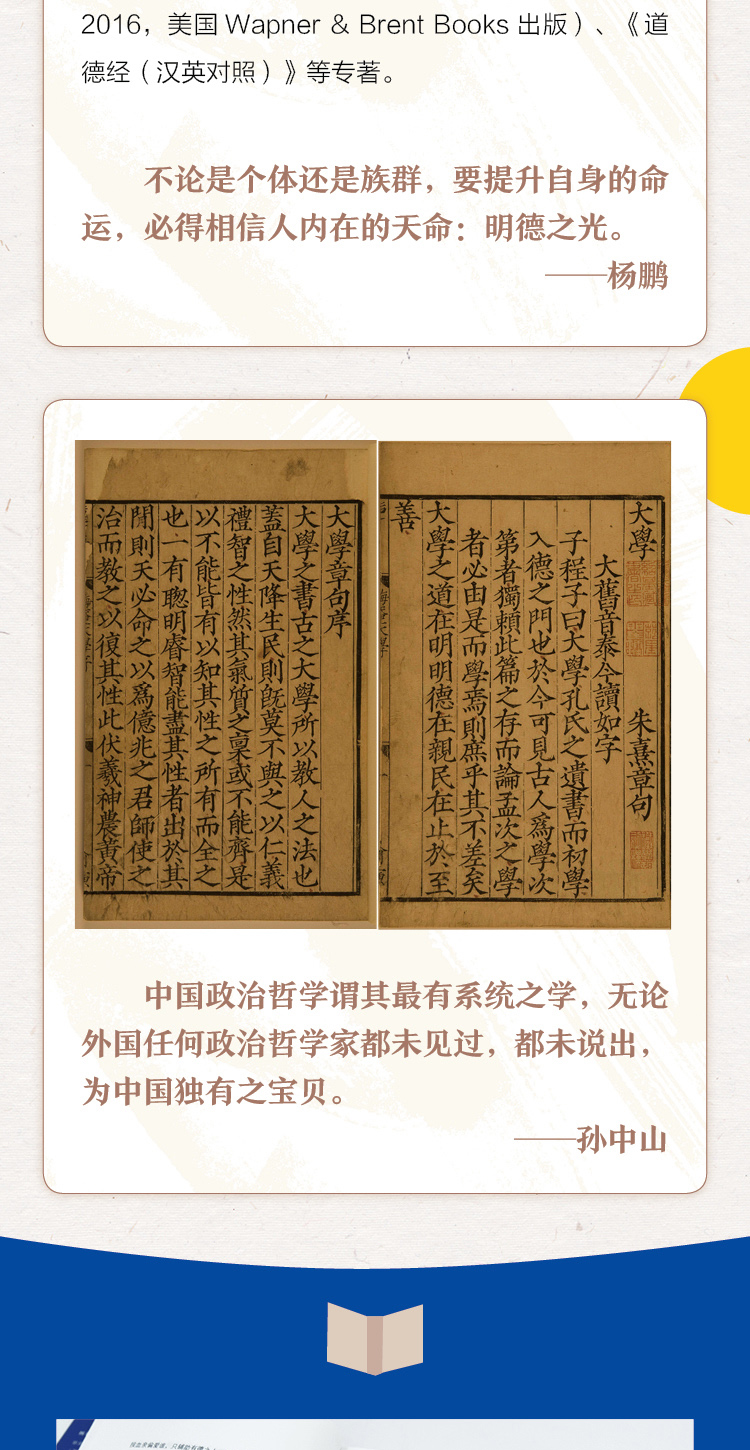 2016，美国 Wapner & Brent Books 出版）、《道
德经（汉英对照）》等专著。
不论是个体还是族群，要提升自身的命
运，必得相信人内在的天命：明德之光。
——杨鹏
大學
朱熹章句
大舊音泰今讀如字
子程子曰大學孔氏之遺書而初學
入德之門也於今可見古人爲學次
第者獨頼此篇之存而論孟次之學
者必由是而學焉則庶乎其不差矣
大學之道在明明德在親民在止於至
善
大學章句序
大學之書古之大學所以教人之法也
蓋自天降生民則旣莫不與之以仁義
禮智之性然其氣質之稟或不能齊是
以不能皆有以知其性之所有而全之
也一有聰明睿智能盡其性者出於其
閒則天必命之以爲億兆之君師使之
治而教之以復其性此伏羲神農黃帝
中国政治哲学谓其最有系统之学，无论
外国任何政治哲学家都未见过，都未说出，
为中国独有之宝贝。
——孙中山